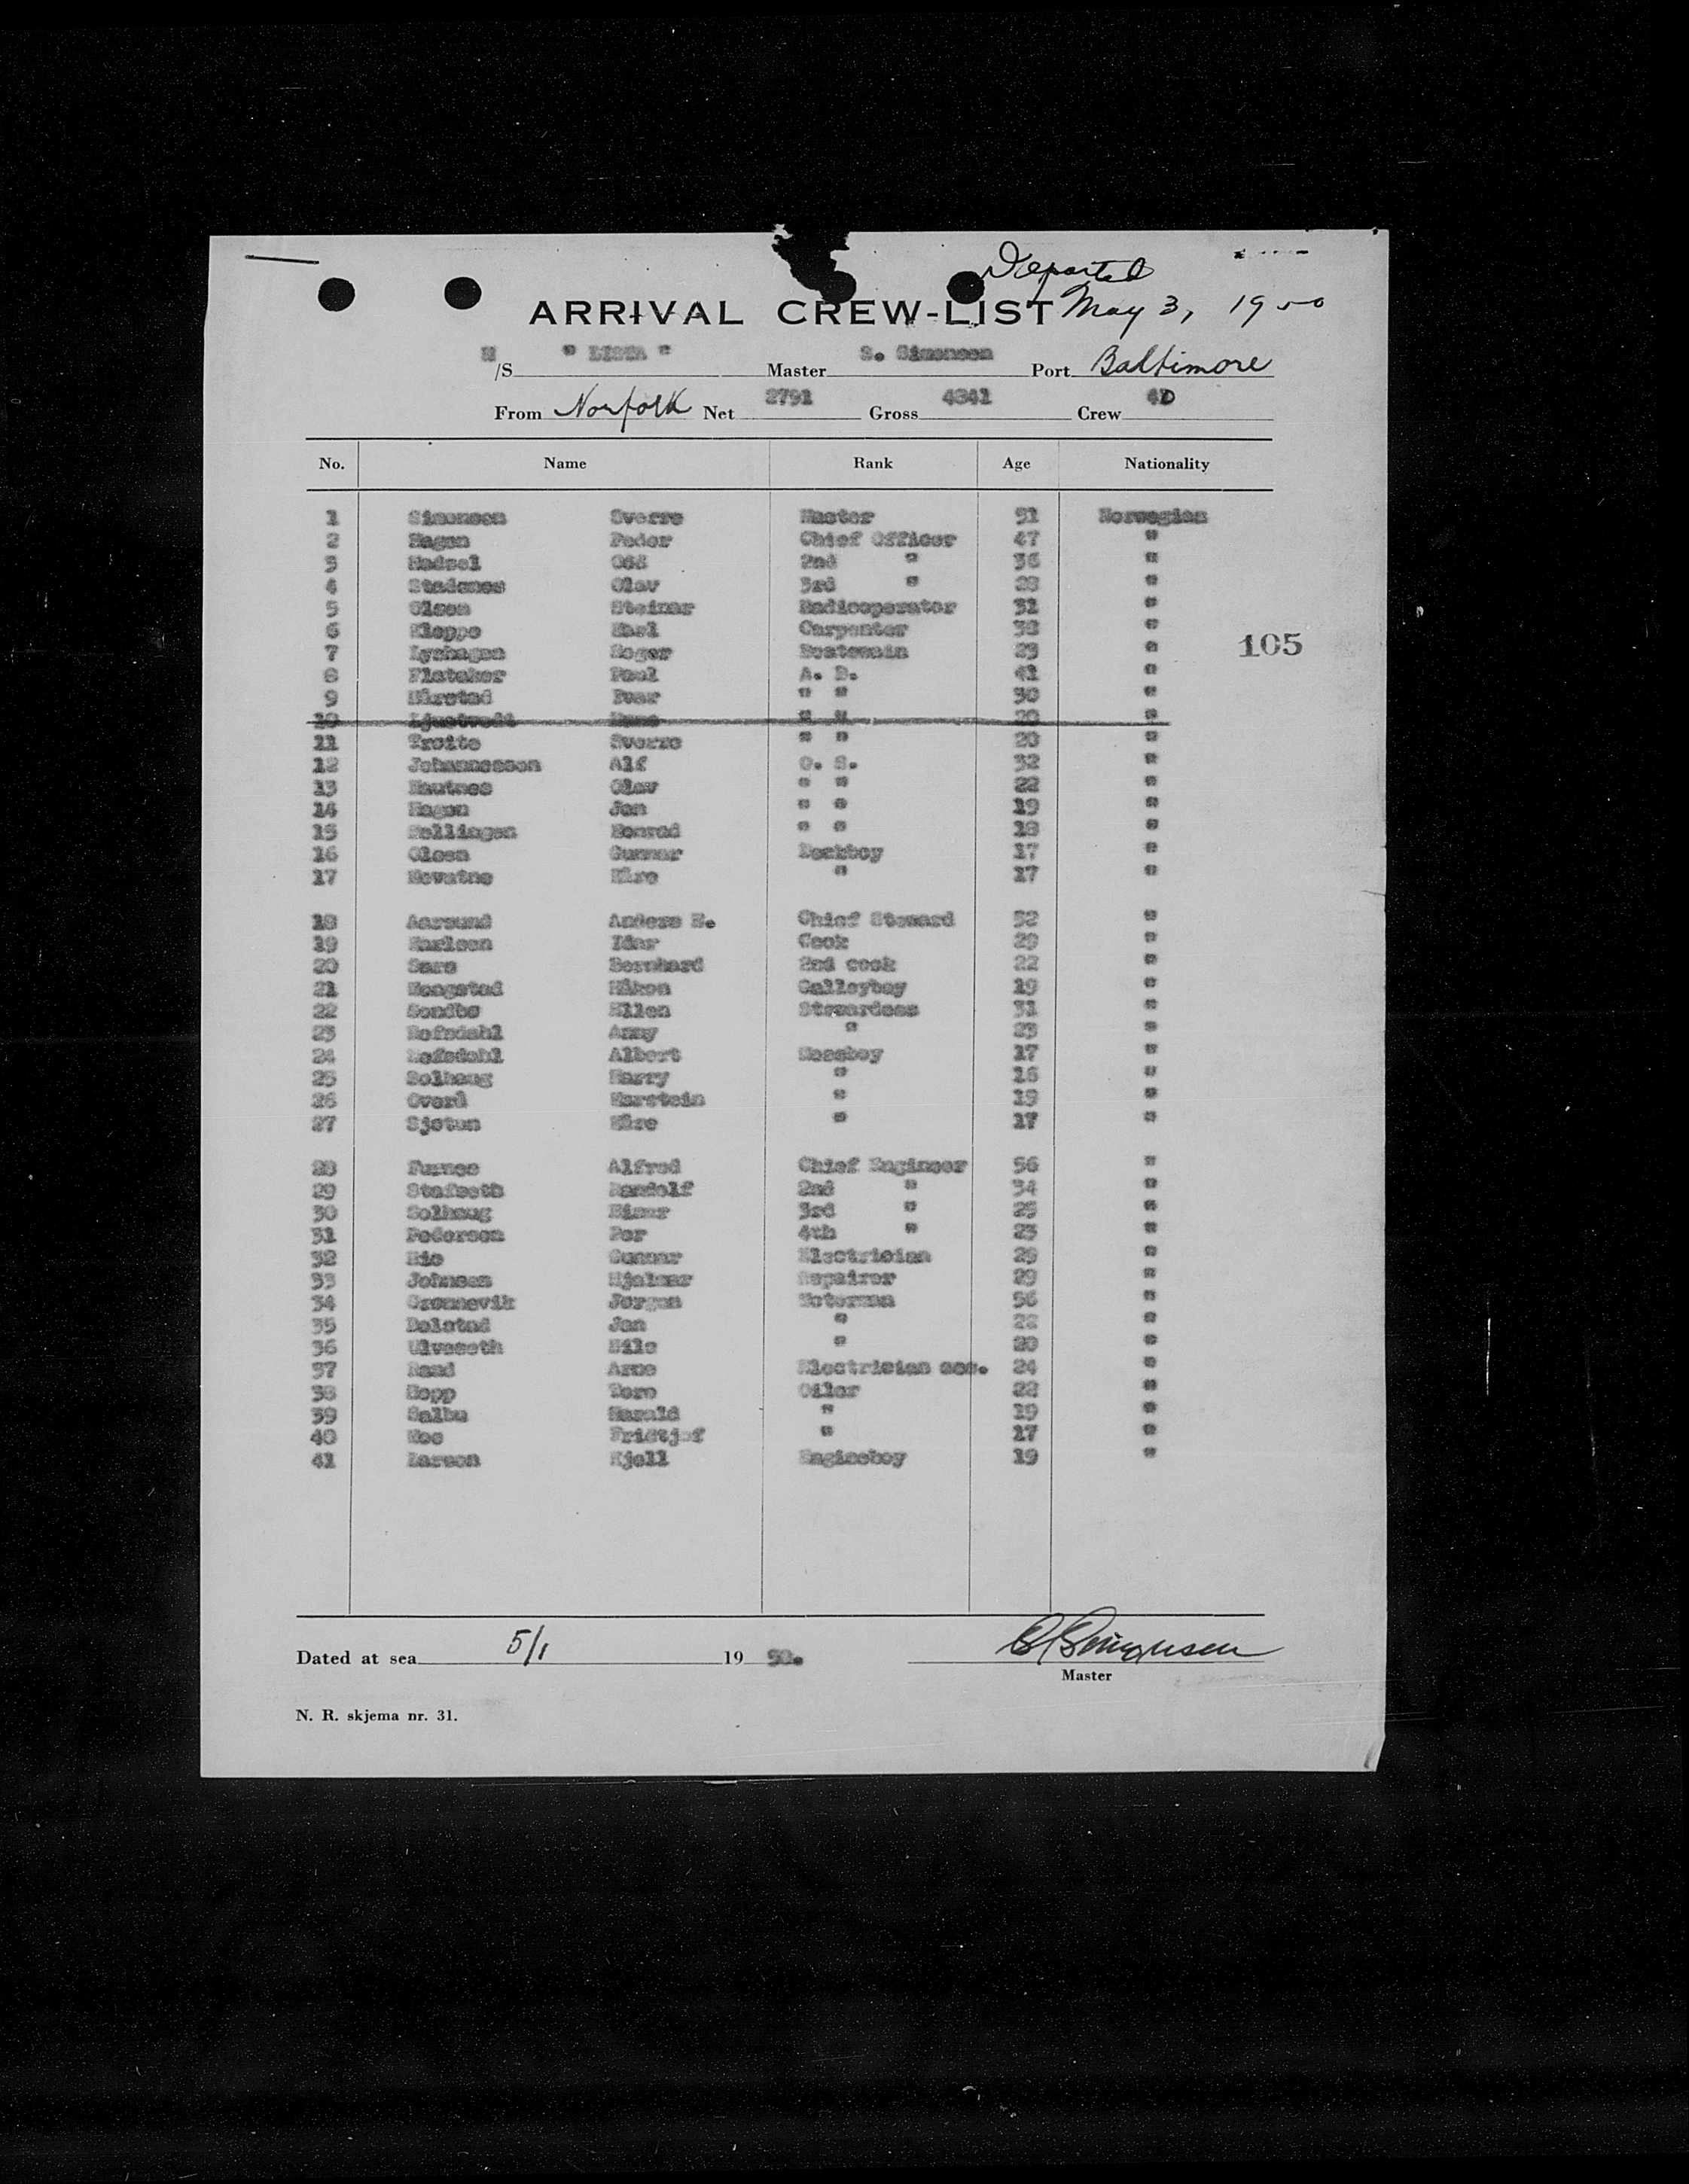 Departed
ARRIVAL CREW-LIST May 3, 1950
M/S " LISTA " Master S. Simonsen Port Baltimore
From Norfolk Net 2791 Gross 4341 Crew 40
No. Name Rank Age Nationality
1 Simonsen Sverre Master 51 Norwegian
2 Hagen Peder Chief Officer 47 "
3 Odd 2nd " 36 "
4 Stadsnes Olav 3rd " 28 "
5 Olsen Steinar Radiooperator 31 "
6 Kleppe Carpenter 38 "
105
7 Lyshagen Roger Boatswain 23 "
8 Flataker Poul A. B. 41 "
9 Ivar " " 30 "
10 " " 20 "
11 Troite Sverre " " 20 "
12 Johannessen Alf O. S. 32 "
13 Olav " " 22 "
14 Hagen Jan " " 19 "
15 Konrad " " 18 "
16 Olsen Gunnar Deckboy 17 "
17 Kåre " 17 "
18 Aarsund Anders Chief Steward 52 "
19 Karlsen Idar Cook 29 "
20 Bernhard 2nd cook 22 "
21 Haagstad Håkon Galleyboy 19 "
22 Ellen Stewardess 31 "
23 Hofsdahl Anny " 23 "
24 Hofsdahl Albert Messboy 17 "
25 Solhaug Harry " 16 "
26 Overå " 19 "
27 Sjotun Kåre " 17 "
28 Furnes Alfred Chief Engineer 56 "
29 Stafseth Randolf 2nd " 34 "
30 Solhaug Einar 3rd " 25 "
31 Pedersen Per 4th " 23 "
32 Gunnar Electrician 29 "
33 Johnsen Hjalmar Repairer 29 "
34 Gronnevik Jorgen Motorman 56 "
35 Dolstad Jan " 22 "
36 Ulveseth Nils " 20 "
37 Arne Electrician ass. 24 "
38 Hopp Tore Oiler 22 "
39 Salbu Harald " 19 "
40 Moe Fridtjof " 17 "
41 Larsen Kjell Engineboy 19 "
Dated at sea 5/1 19 50. S. Simonsen
Master
N. R. skjema nr. 31.